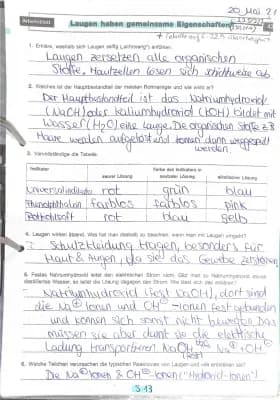 Arbeitsblatt
20. Mai 21
Laugen haben gemeinsame Eigenschaften
1. Erkläre, weshalb sich Laugen seifig („schmierig“) anfühlen.
Laugen zersetzen alle organischen
Stoffe, Hautzellen lösen sich schichtweise ab
2. Welches ist der Hauptbestandteil der meisten Rohrreiniger und wie wirkt er?
Der Hauptbestandteil ist das Natriumhydroxid
(NaOH) oder Kaliumhydroxid (KOH) bildet mit
Wasser (H2O) eine Lauge. Die organischen Stoffe z.B
Haare werden aufgelöst und können dann weggespült
werden.
3. Vervollständige die Tabelle:
Indikator
Farbe des Indikators in
saurer Lösung
neutraler Lösung
alkalischer Lösung
Universalindikator rot grün blau
Phenolphthalein farblos farblos pink
Rotkohlsaft rot blau gelb
4. Laugen wirken ätzend. Was hat man deshalb zu beachten, wenn man mit Laugen umgeht?
Schutzkleidung tragen, besonders für
Haut & Augen, da sie das Gewebe zerstören
5. Festes Natriumhydroxid leitet den elektrischen Strom nicht. Gibt man zu Natriumhydroxid etwas
destilliertes Wasser, so leitet die Lösung dagegen den Strom. Wie lässt sich das erklären?
Natriumhydroxid (fest NaOH), dort sind
die Na⊕ Ionen und OH⊖-Ionen fest gebunden
und können sich somit nicht bewegen. Das
müssen sie aber damit sie die elektrische
Ladung transportieren. NaOH Na⊕ + OH⊖
(fest)
6. Welche Teilchen verursachen die typischen Reaktionen von Laugen und wie entstehen sie?
Die Na⊕ Ionen & OH⊖-Ionen ("Hydroxid-Ionen")
S. 13